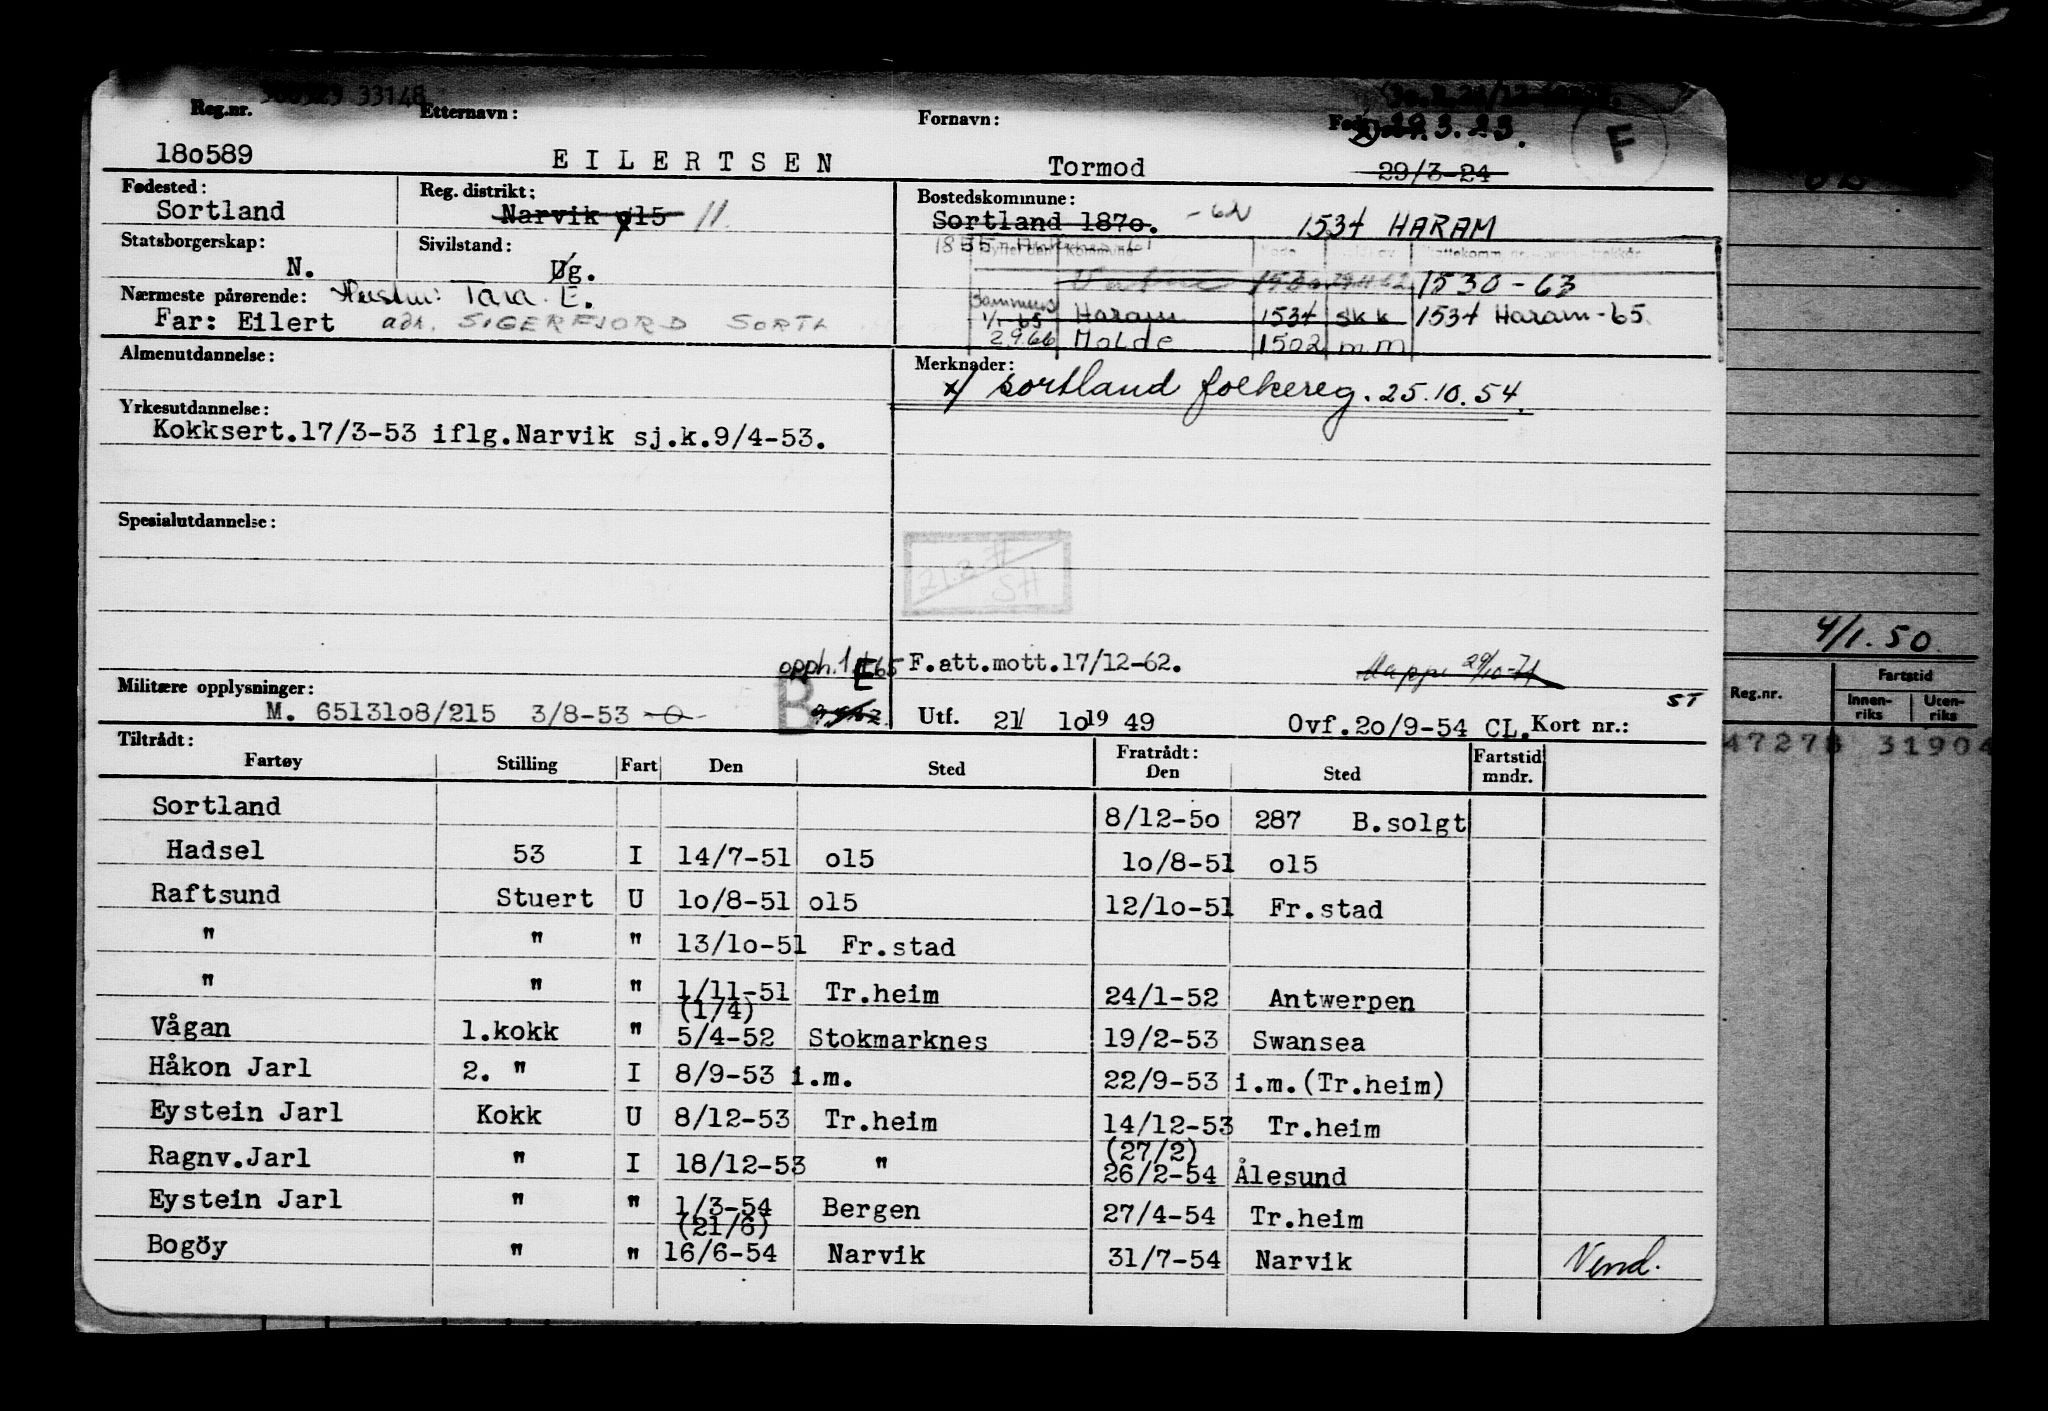 33148
Reg.nr. Etternavn: Fornavn: 29.3.23.
180589 EILERTSEN Tormod 29/3-24
F
Fødested: Reg. distrikt: Bostedskommune:
Sortland Narvik 015 11. Sortland 1870. -62 1534 HARAM
Statsborgerskap: Sivilstand:
N. Ug. 1530-63
Nærmeste pårørende: Tara E. Haram 1534 SKK 1534 Haram-65.
Far: Eilert adr. SIGERFJORD SORTL 2.9.66 Molde 1502 mm
Almenutdannelse: Merknader:
x/ Sortland folkereg. 25.10.54.
Yrkesutdannelse:
Kokksert.17/3-53 iflg.Narvik sj.k.9/4-53.
Spesialutdannelse:
SH
opph. E F.att.mott.17/12-62. Mappe 29/10-71
4/1.50
Militære opplysninger: B ST
M. 6513108/215 3/8-53 -0- Utf. 21/ 1019 49 Ovf.20/9-54 CL. Kort nr.:
Reg.nr. Fartstid
Innen-riks Uten-riks
47278 31904
Tiltrådt: Fratrådt:
Fartøy Stilling Fart Den Sted Den Sted Fartstid mndr.
Sortland 8/12-50 287 B.solgt
Hadsel 53 I 14/7-51 o15 10/8-51 o15
Raftsund Stuert U 10/8-51 o15 12/10-51 Fr.stad
" " " 13/10-51 Fr.stad
" " " 1/11-51 Tr.heim 24/1-52 Antwerpen
(1/4)
Vågan 1.kokk " 5/4-52 Stokmarknes 19/2-53 Swansea
Håkon Jarl 2. " I 8/9-53 i.m. 22/9-53 i.m.(Tr.heim)
Eystein Jarl Kokk U 8/12-53 Tr.heim 14/12-53 Tr.heim
(27/2)
Ragnv.Jarl " I 18/12-53 " 26/2-54 Ålesund
Eystein Jarl " " 1/3-54 Bergen 27/4-54 Tr.heim
(21/6)
Bogöy " " 16/6-54 Narvik 31/7-54 Narvik Vend.